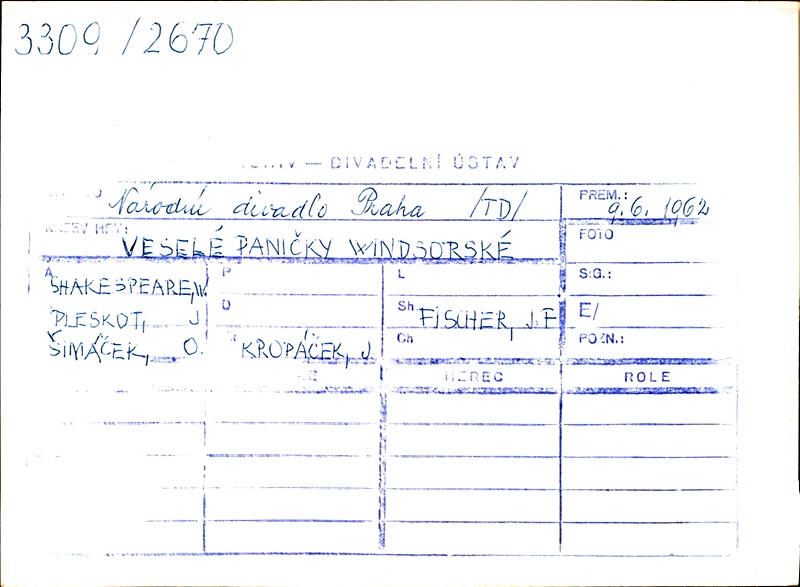 3309/2670
— DIVADELNÍ ÚSTAV
Národní divadlo Praha /TD/ PREM.: 9.6. 1962
NÁZEV HRY: VESELÉ PANIČKY WINDSORSKÉ FOTO
A SHAKESPEARE, W. P L SIG.:
PLESKOT, J O Sh FISCHER, J.F E/
ŠIMÁČEK, O. KROPÁČEK, J Ch POZN.:
HEREC ROLE